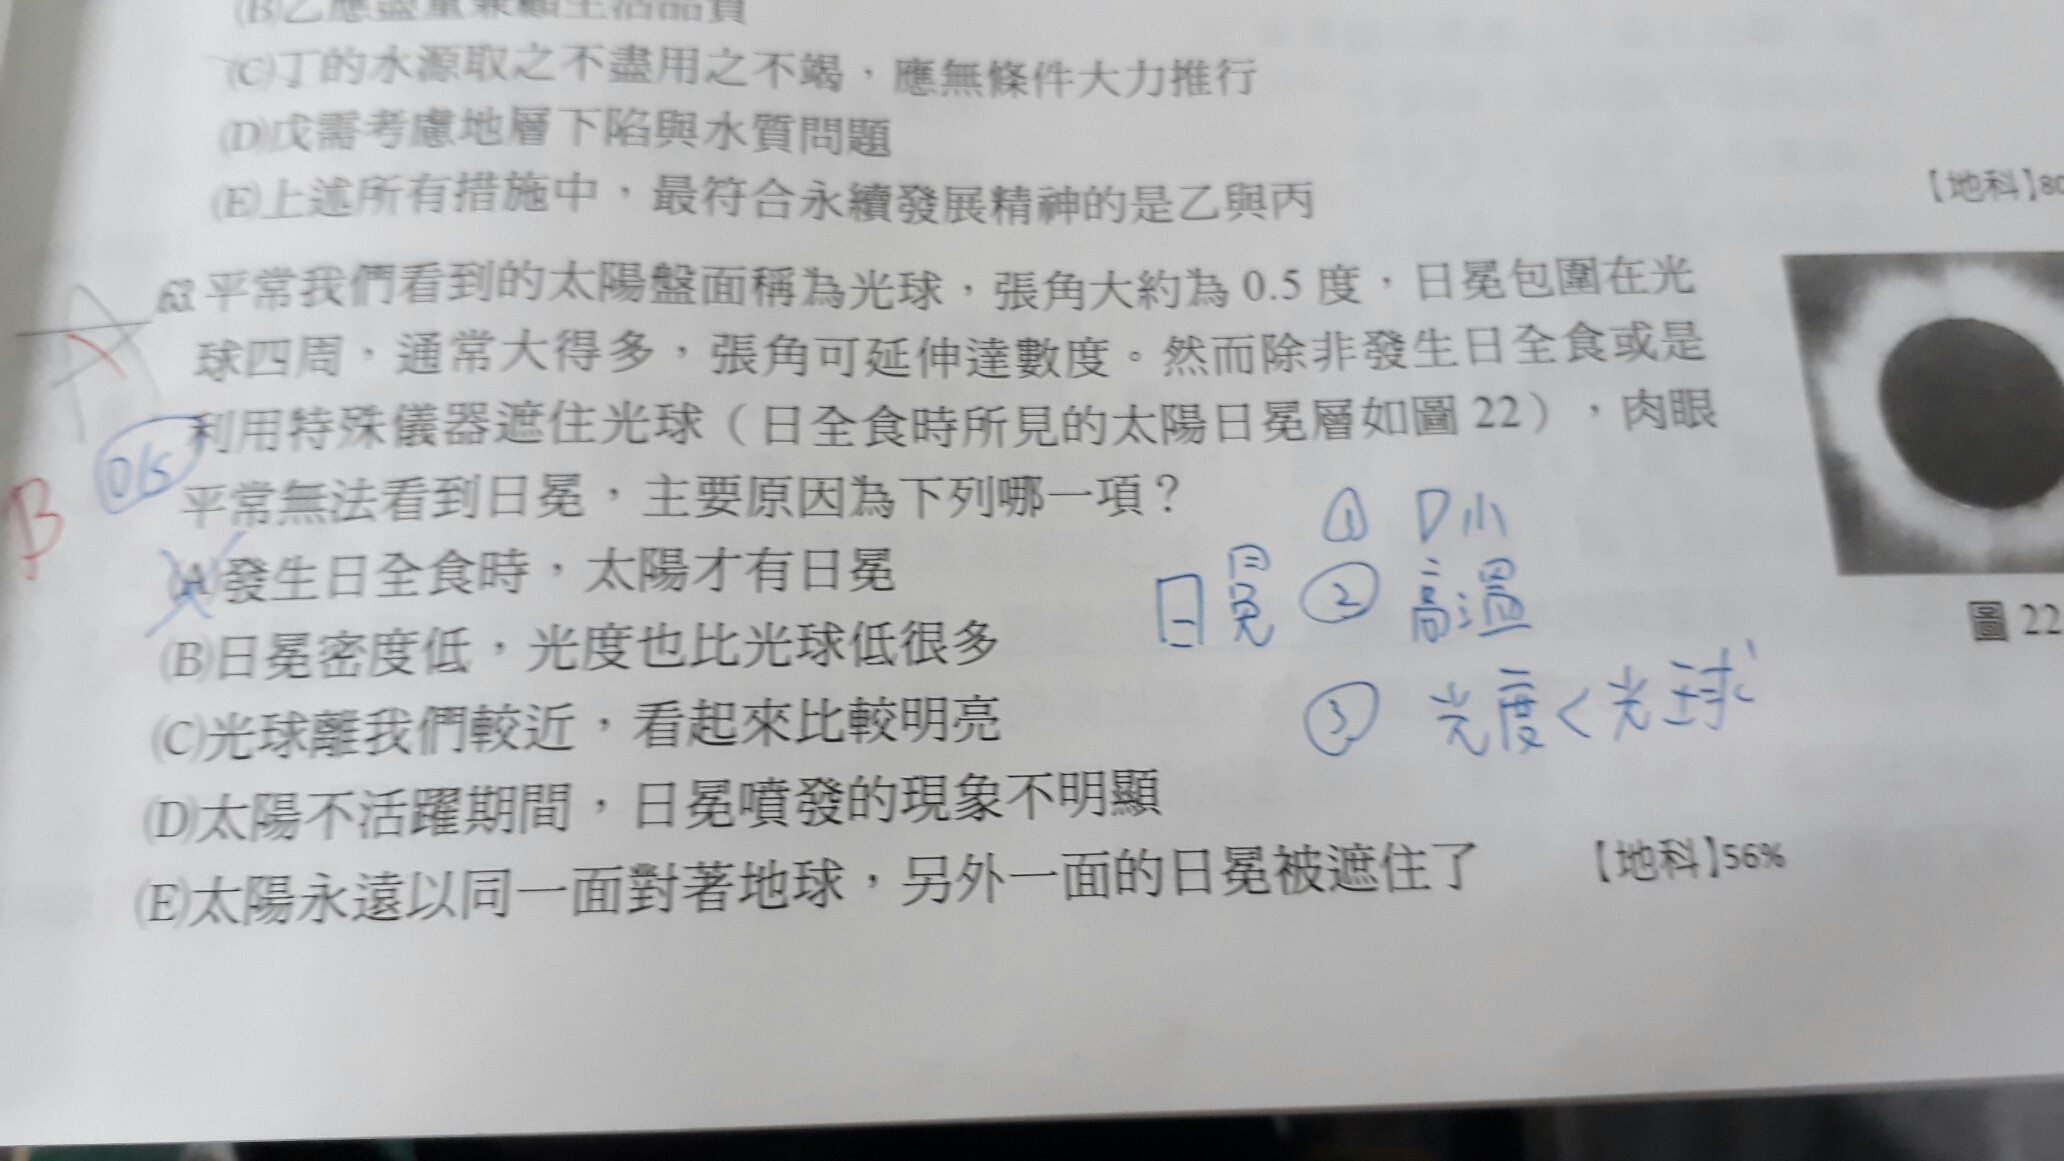 (B)乙應盡量兼顧生活品質
(C)丁的水源取之不盡用之不竭，應無條件大力推行
(D)戊需考慮地層下陷與水質問題
(E)上述所有措施中，最符合永續發展精神的是乙與丙
【地科】80
A
63.平常我們看到的太陽盤面稱為光球，張角大約為 0.5 度，日冕包圍在光
球四周，通常大得多，張角可延伸達數度。然而除非發生日全食或是
利用特殊儀器遮住光球（日全食時所見的太陽日冕層如圖 22），肉眼
平常無法看到日冕，主要原因為下列哪一項？
B
(A)發生日全食時，太陽才有日冕
(B)日冕密度低，光度也比光球低很多
(C)光球離我們較近，看起來比較明亮
(D)太陽不活躍期間，日冕噴發的現象不明顯
(E)太陽永遠以同一面對著地球，另外一面的日冕被遮住了
【地科】56%
圖 22
日冕
① D小
② 高溫
③ 光度<光球